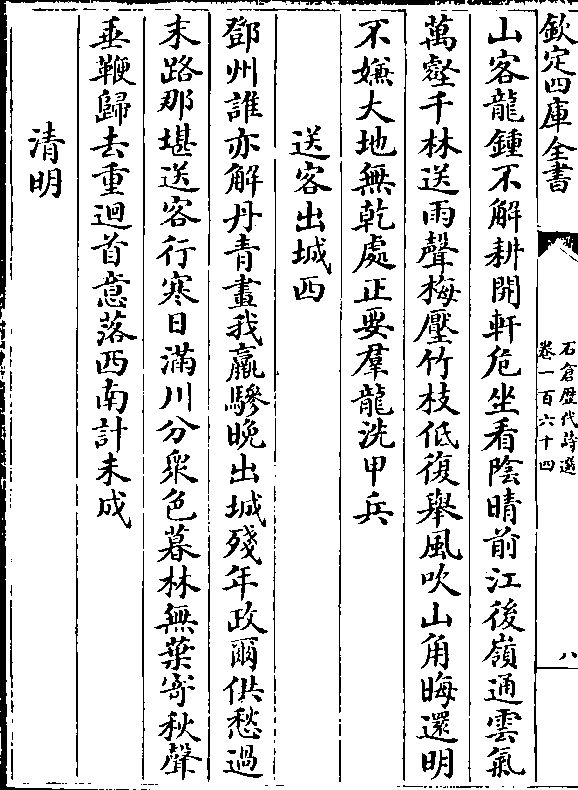 欽定四庫全書
石倉歷代詩選
卷一百六十四
八
山客龍鍾不解耕開軒危坐看陰晴前江後嶺通雲氣
萬壑千林送雨聲梅壓竹枝低復舉風吹山角晦還明
不嫌大地無乾處正要羣龍洗甲兵
送客出城西
鄧州誰亦解丹青畫我羸驂晚出城殘年政爾供愁過
末路那堪送客行寒日滿川分衆色暮林無葉寄秋聲
垂鞭歸去重迴首意落西南計未成
清明